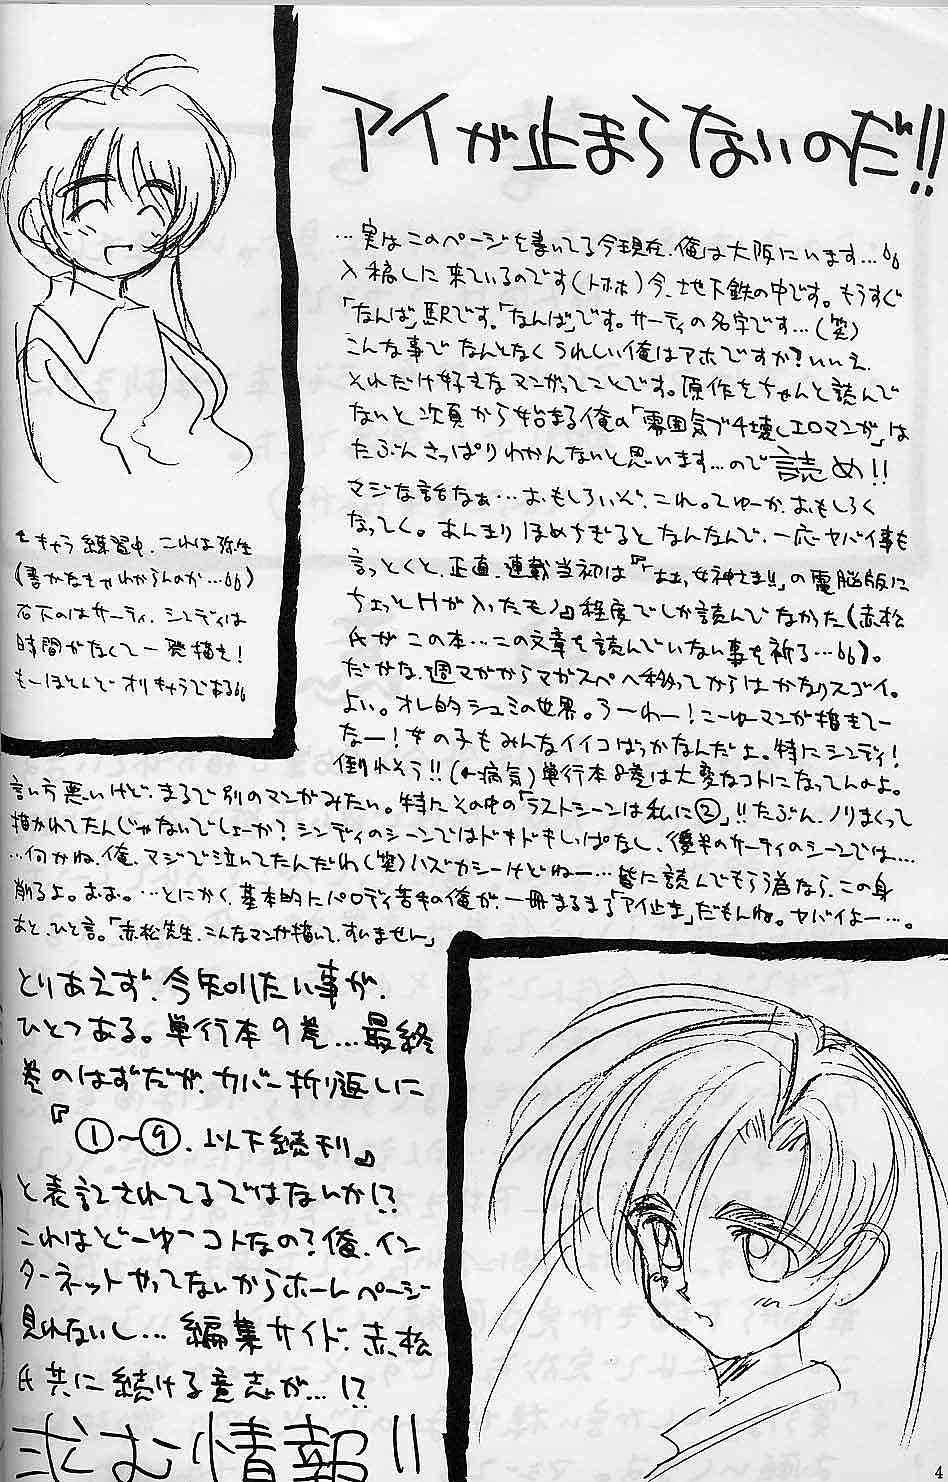 アイが止まらないのだ!!
…実はこのページを書いてる今現在、俺は大阪にいます…
入稿しに来ているのです(トホホ)今、地下鉄の中です。もうすぐ
「なんば」駅です。「なんば」です。サーティの名字です…(笑)
こんな事でなんとなくうれしい俺はアホですか?いいえ
それだけ好きなマンガってことです。原作をちゃんと読んで
ないと次頁から始まる俺の「雰囲気ブチ壊しエロマンガ」は
たぶんさっぱりわかんないと思います…ので読め!!
マジな話なぁ…おもしろいぞ、これ。てゆーか、おもしろく
なってく。あんまりほめちぎるとなんなんで、一応ヤバイ事も
言っとくと、正直、連載当初は『「ああっ女神さまっ!!」の電脳版に
ちょっとHが入ったモノ』程度でしか読んでなかった(赤松
氏がこの本…この文章を読んでいない事を祈る…)。
だがな、週マガからマガスペへ移ってからはかなりスゴイ。
よい。オレ的シュミの世界。うーわー!こーゆーマンガ描きてー
なー!女の子もみんなイイコばっかなんだよ。特にシンディ!
倒れそう!!(←病気)単行本8巻は大変なコトになってんのよ。
言い方悪いけど、まるで別のマンガみたい。特にその中の「ラストシーンは私に②」!!たぶん、ノリまくって
描かれてたんじゃないでしょーか?シンディのシーンではドキドキしっぱなし、後半のサーティのシーンでは…
…何かね、俺、マジで泣いてたんだわ(笑)ハズカシーけどねー…皆に読んでもらう為なら、この身
削るよ。おぉ。…とにかく、基本的にパロディ苦手の俺が、一冊まるまる「アイ止ま」だもんね。ヤバイよー…。
あと、ひと言。「赤松先生、こんなマンガ描いて、すいません」
もきゃら練習中、これは弥生
(書かなきゃわからんのか…)
右下のはサーティ、シンディは
時間がなくて一発描き!
もーほとんどオリキャラである
とりあえず、今知りたい事が、
ひとつある。単行本9巻…最終
巻のはずだが、カバー折り返しに
『①〜⑨、以下続刊』
と表記されてるではないか!?
これはどーゆーコトなの?俺、イン
ターネットやってないからホームページ
見れないし…編集サイド、赤松
氏共に続ける意志が…!?
求む情報!!
4